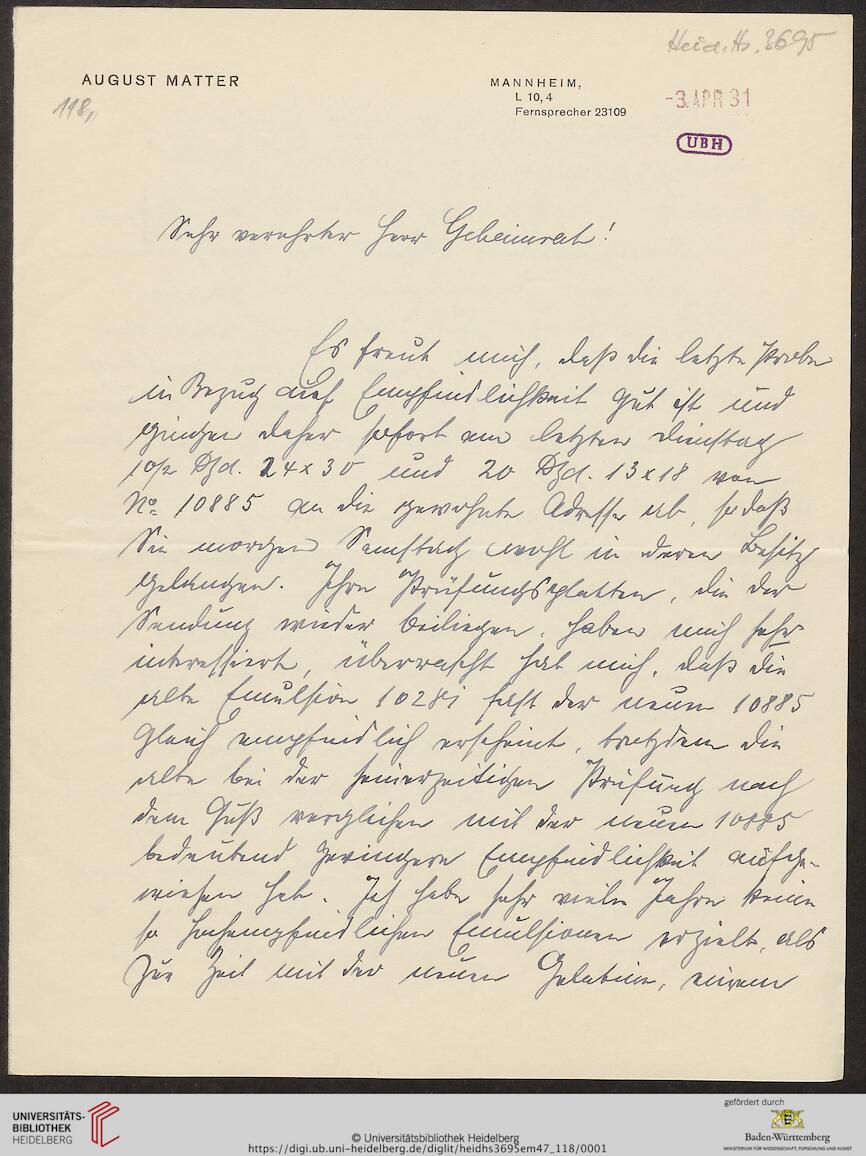 Heid. Hs. 3695
AUGUST MATTER
MANNHEIM,
L 10, 4
Fernsprecher 23109
-3. APR 31
118,
UBH
Sehr verehrter Herr Geheimrat!
Es freut mich, daß die letzte Probe
in Bezug auf Empfindlichkeit gut ist und
gingen daher sofort am letzten Dienstag
10/2 Dzd. 24 x 30 und 20 Dzd. 13 x 18 von
No 10885 an die gewohnte Adresse ab, so daß
Sie morgen Samstag wohl in deren Besitz
gelangen. Ihre Prüfungsplatten, die der
Sendung wieder beiliegen, haben mich sehr
interessiert, überrascht hat mich, daß die
alte Emulsion 10281 fast der neuen 10885
gleich empfindlich erscheint, trotzdem die
alte bei der seinerzeitigen Prüfung nach
dem Guß verglichen mit der neuen 10885
bedeutend geringere Empfindlichkeit aufge-
wiesen hat. Ich habe sehr viele Jahre keine
so hochempfindlichen Emulsionen erzielt, als
zur Zeit mit der neuen Gelatine, einem
UNIVERSITÄTS-
BIBLIOTHEK
HEIDELBERG
© Universitätsbibliothek Heidelberg
https://digi.ub.uni-heidelberg.de/diglit/heidhs3695em47_118/0001
gefördert durch
Baden-Württemberg
MINISTERIUM FÜR WISSENSCHAFT, FORSCHUNG UND KUNST